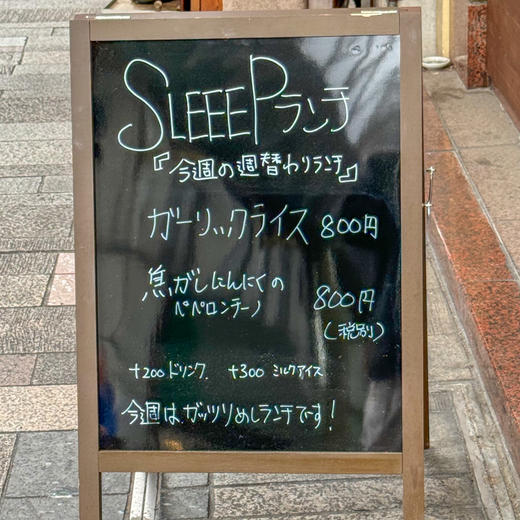 SLEEEPランチ
『今週の週替わりランチ』
ガーリックライス 800円
焦がしにんにくの
ペペロンチーノ 800円
(税別)
+200 ドリンク. +300 ミルクアイス
今週はガッツリめしランチです!